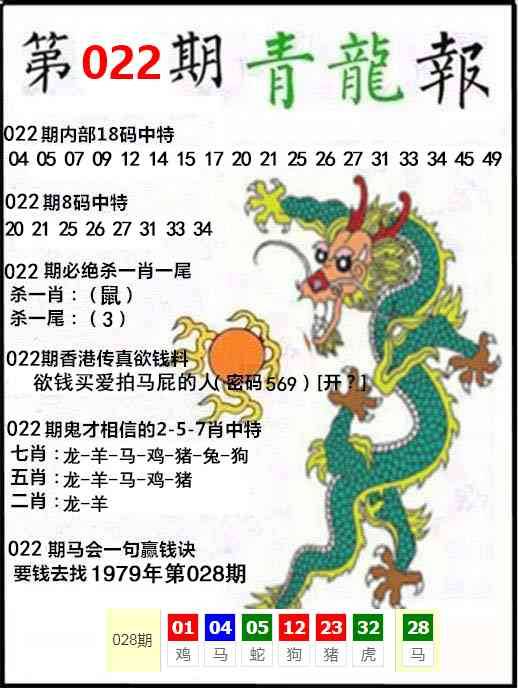 第022期青龍報
022期内部18码中特
04 05 07 09 12 14 15 17 20 21 25 26 27 31 33 34 45 49
022期8码中特
20 21 25 26 27 31 33 34
022 期必绝杀一肖一尾
杀一肖：（鼠）
杀一尾：（3）
022期香港传真欲钱料
欲钱买爱拍马屁的人(密码569) [开？]
022期鬼才相信的2-5-7肖中特
七肖：龙-羊-马-鸡-猪-兔-狗
五肖：龙-羊-马-鸡-猪
二肖：龙-羊
022 期马会一句赢钱诀
要钱去找1979年第028期
028期 01 04 05 12 23 32 28
鸡 马 蛇 狗 猪 虎 马